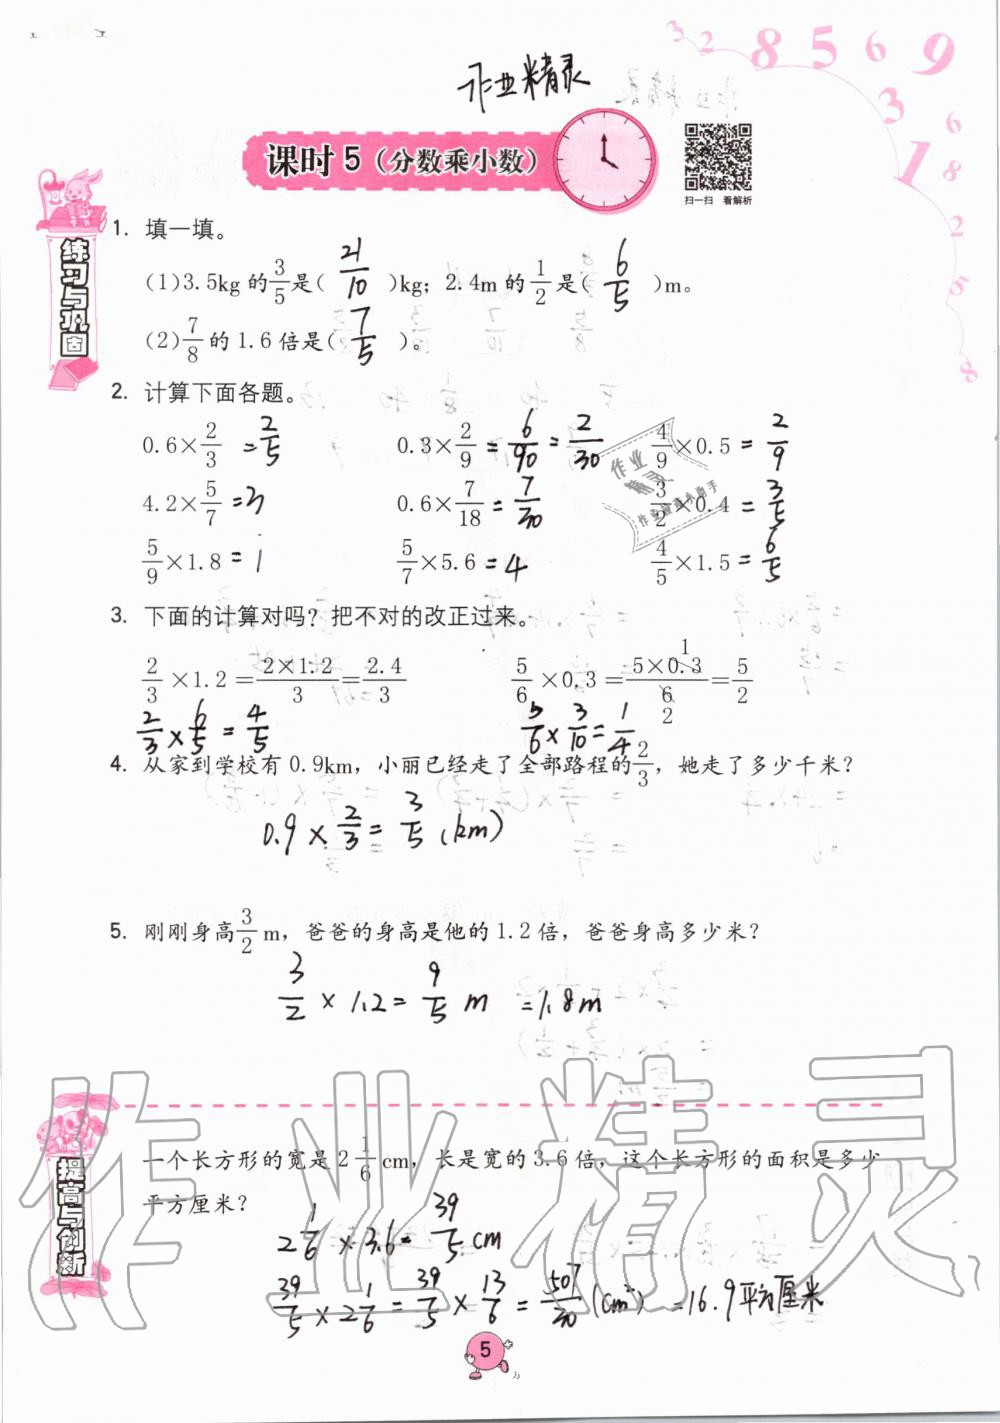 作业精灵
课时5（分数乘小数）
扫一扫 看解析
练习与巩固
1. 填一填。
(1)3.5kg的3/5是( 21/10 )kg；2.4m的1/2是( 6/5 )m。
(2)7/8的1.6倍是( 7/5 )。
2. 计算下面各题。
0.6×2/3 =2/5 0.3×2/9 =6/90=2/30 4/9×0.5 =2/9
4.2×5/7 =3 0.6×7/18 =7/30 3/2×0.4 =3/5
5/9×1.8 =1 5/7×5.6 =4 4/5×1.5 =6/5
3. 下面的计算对吗？把不对的改正过来。
2/3×1.2=2×1.2/3=2.4/3 5/6×0.3=5×0.3/6=5/2
1
2
2/3×6/5=4/5 5/6×3/10=1/4
4. 从家到学校有0.9km，小丽已经走了全部路程的2/3，她走了多少千米？
0.9×2/3=3/5(km)
5. 刚刚身高3/2m，爸爸的身高是他的1.2倍，爸爸身高多少米？
3/2×1.2=9/5m =1.8m
提高与创新
一个长方形的宽是2 1/6 cm，长是宽的3.6倍，这个长方形的面积是多少
平方厘米？
2 1/6×3.6=39/5cm
39/5×2 1/6=39/5×13/6=507/30(cm²) =16.9平方厘米
5
作业精灵